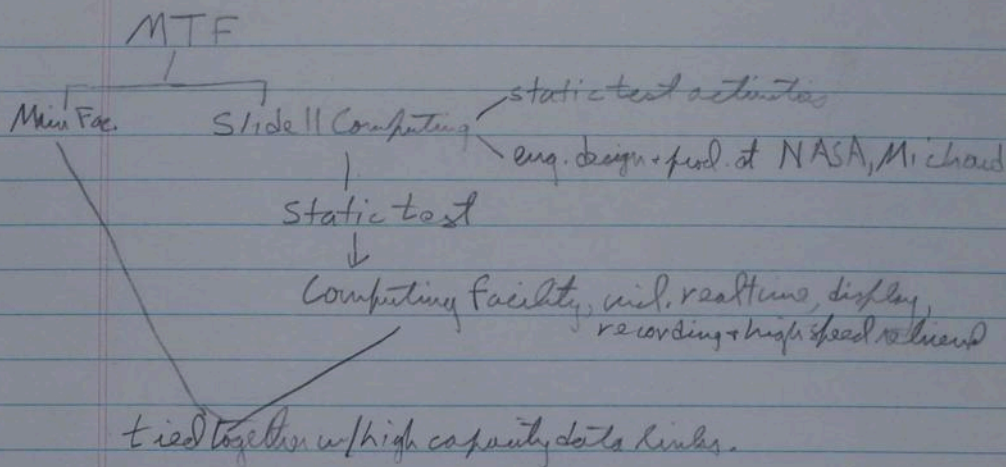 MTF
Main Fac.
Slidell Computing
static test activities
eng. design + prod. at NASA, Michoud
static test
Computing facility, incl. realtime, display,
recording + high speed retrieval
tied together w/high capacity data links.